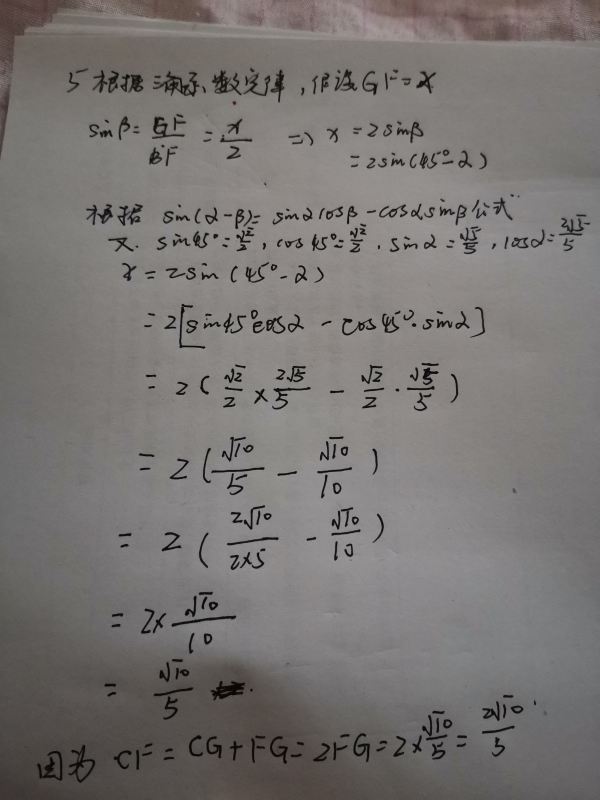 5 根据三角函数定律，假设GF=x
sinβ=GF/BF=x/2 => x=2sinβ
=2sin(45°-2)
根据 sin(2-β)=sin2cosβ-cos2sinβ公式
又. sin45°=√2/2, cos45°=√2/2, sin2=√5/5, cos2=2√5/5
x=2sin(45°-2)
=2[sin45°cos2-cos45°·sin2]
=2(√2/2×2√5/5-√2/2·√5/5)
=2(√10/5-√10/10)
=2(2√10/2×5-√10/10)
=2×√10/10
=√10/5
因为 CF=CG+FG=2FG=2×√10/5=2√10/5